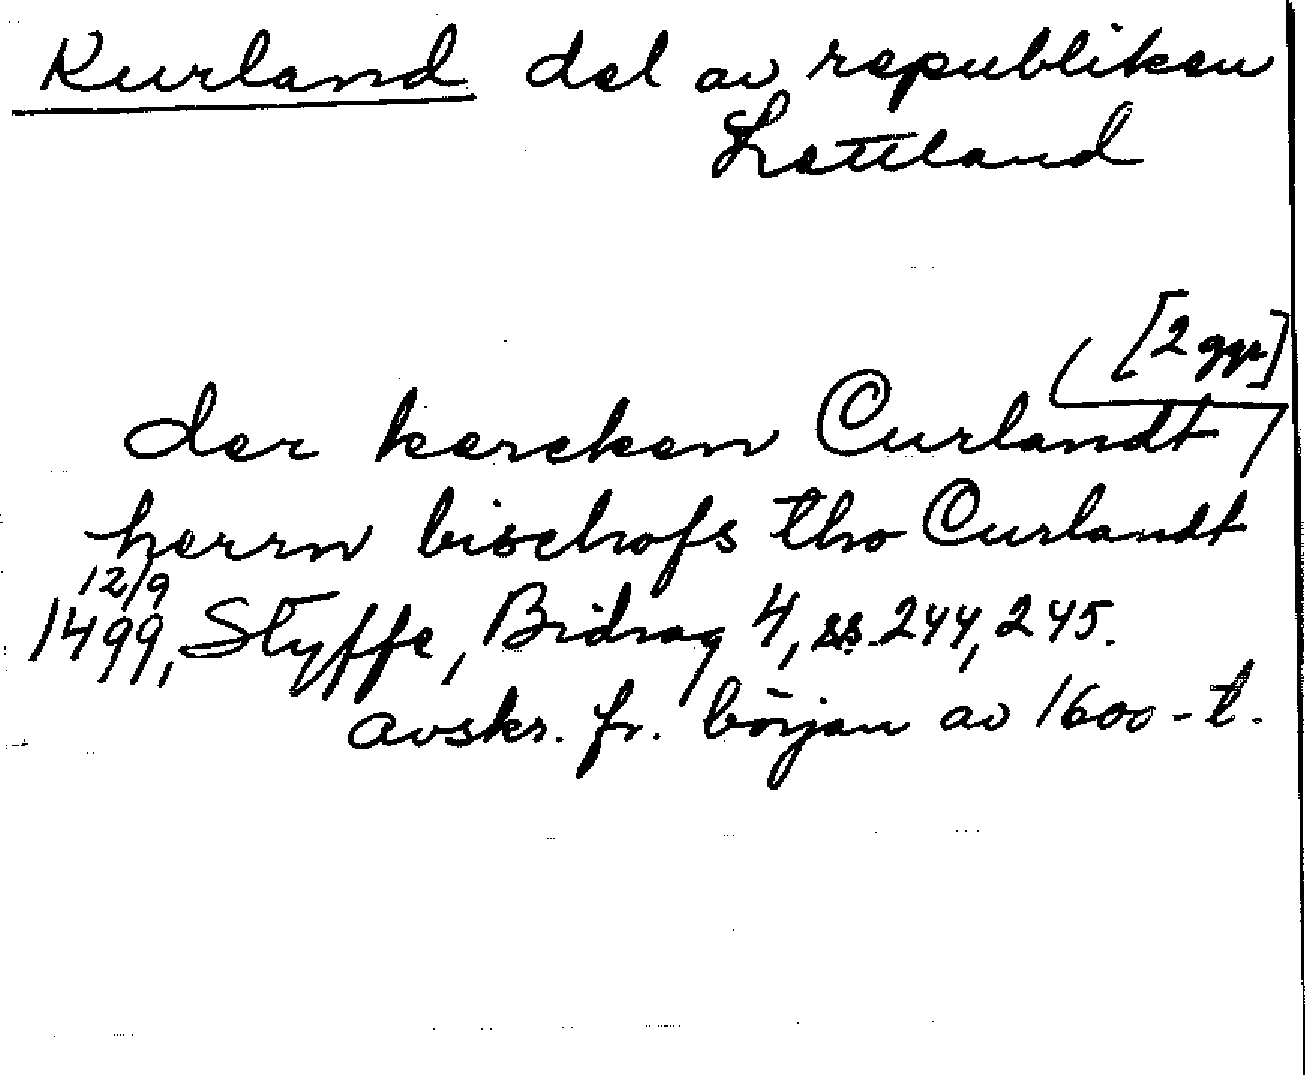 Kurland del av republiken
Lettland
[2 ggr]
der kercken Curlandt /
herrn bischofs tho Curlandt
12/9
1499, Styffe, Bidrag 4, ss. 244, 245.
avskr. fr. början av 1600-t.